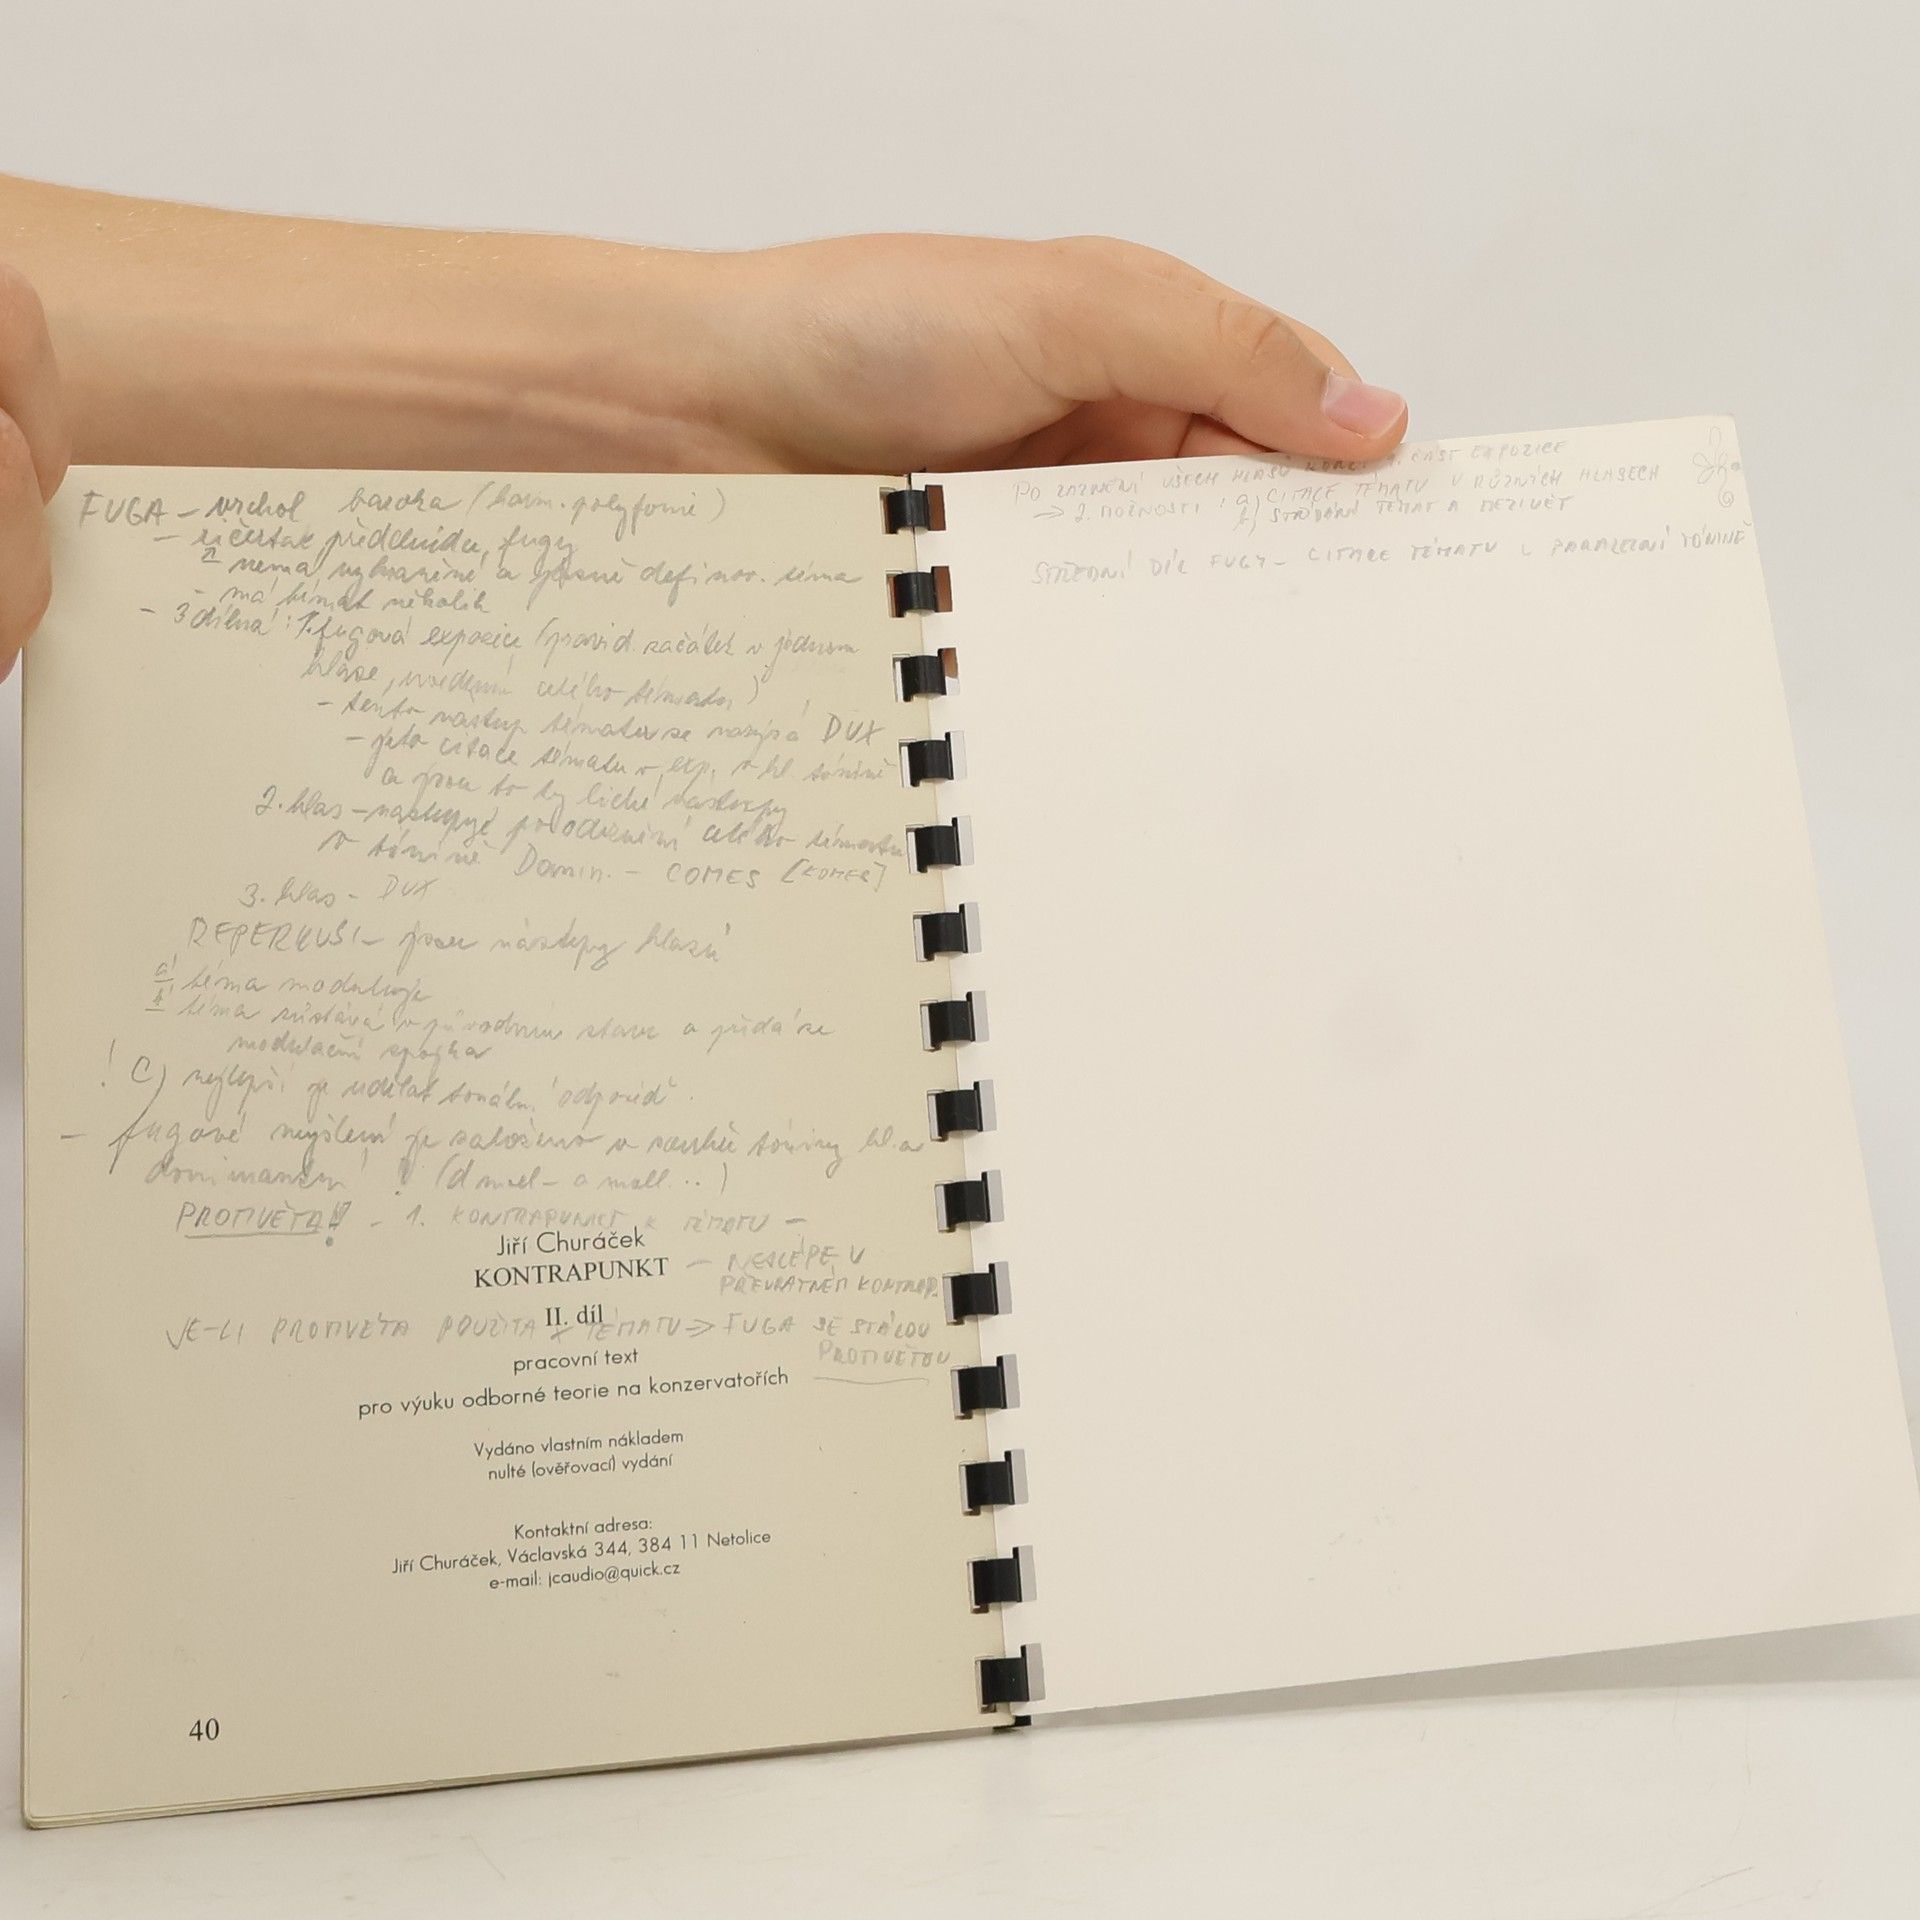 FUGA – vrchol baroka (harm. polyfonie)
– ričertar předchůdce fugy
nemá vyhraněné a jasně definov. téma
– má témat několik
– 3 dílná: 1. fugová expozice (pravid. začátek v jednom
hlase, uvedení celého tématu)
– tento nástup tématu se nazývá DUX
– je to citace tématu v exp. v hl. tónině
a jsou to ty liché nástupy
2. hlas – nastupuje po odeznění celého tématu
v tónině Domin. – COMES [KOMES]
3. hlas – DUX
REPERKUSI – jsou nástupy hlasů
a) téma moduluje
b) téma zůstává v původním stavu a přidá se
modulační spojka
! C) nejlepší je udělat tonální odpověď.
– fugové myšlení je založeno v souhře tóniny hl. a
dominantní ! (d moll – a moll...)
PROTIVĚTA! – 1. KONTRAPUNKT K TÉMATU –
Jiří Churáček
KONTRAPUNKT – NEJLÉPE V
PŘEVRATNÉM KONTRAP.
II. díl
JE-LI PROTIVĚTA POUŽITA K TÉMATU => FUGA SE STÁLOU
PROTIVĚTOU
pracovní text
pro výuku odborné teorie na konzervatořích
Vydáno vlastním nákladem
nulté (ověřovací) vydání
Kontaktní adresa:
Jiří Churáček, Václavská 344, 384 11 Netolice
e-mail: jcaudio@quick.cz
40
PO ZAZNĚNÍ VŠECH HLASŮ KONČÍ 1. ČÁST EXPOZICE
=> 2. MOŽNOSTI: a) CITACE TÉMATU V RŮZNÝCH HLASECH
b) STŘÍDÁNÍ TÉMAT A MEZIVĚT
STŘEDNÍ DÍL FUGY – CITACE TÉMATU V PARALELNÍ TÓNINĚ